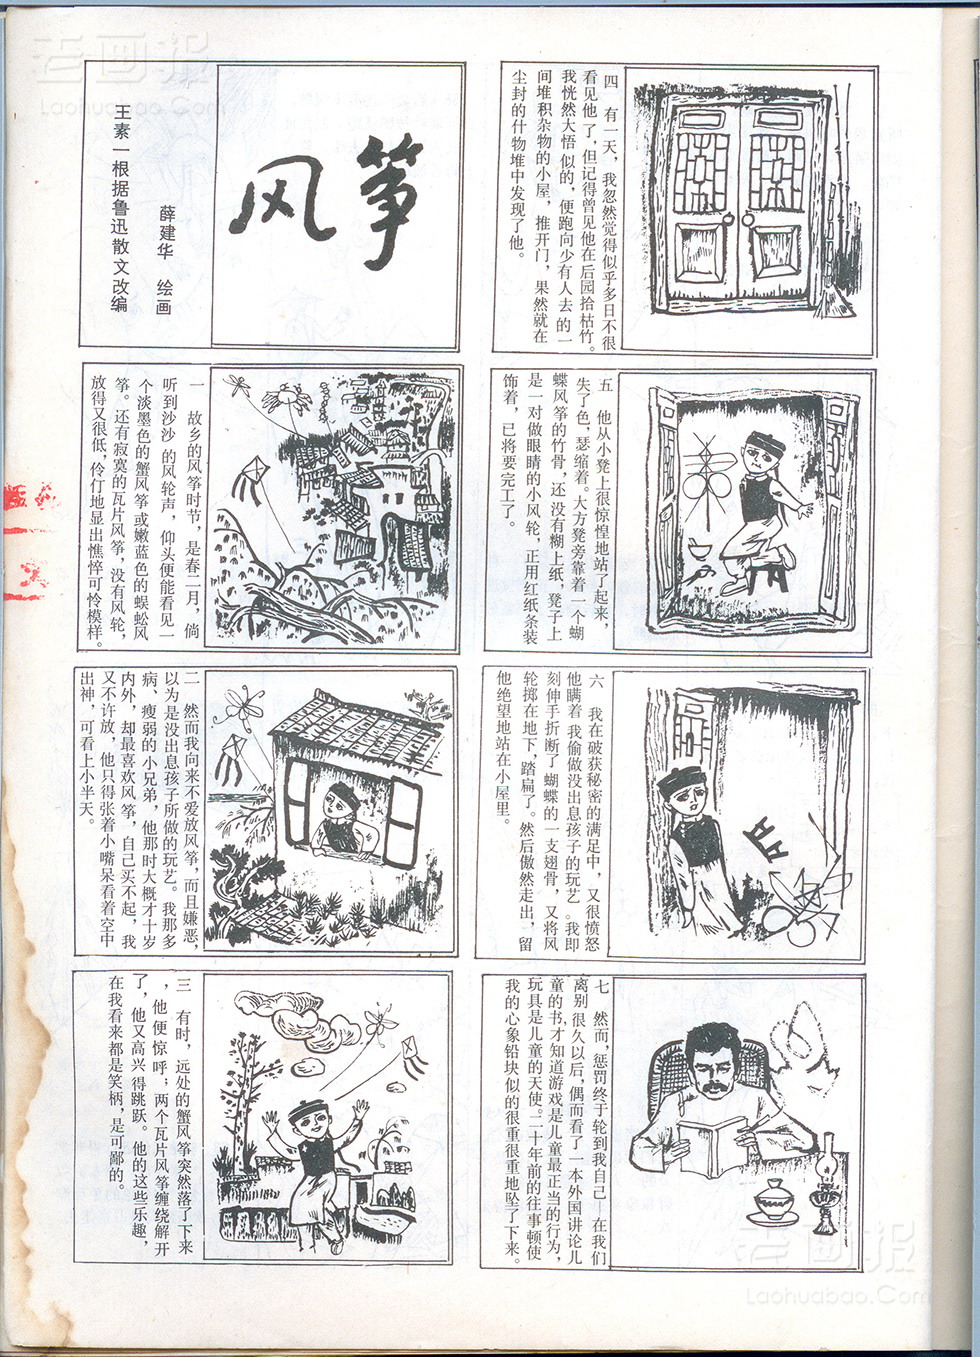 老画报
Laohuabao.Com
风筝
薛建华 绘画
王素一根据鲁迅散文改编
一 故乡的风筝时节，是春二月，倘
听到沙沙的风轮声，仰头便能看见一
个淡墨色的蟹风筝或嫩蓝色的蜈蚣风
筝。还有寂寞的瓦片风筝，没有风轮，
放得又很低，伶仃地显出憔悴可怜模样。
二 然而我向来不爱放风筝，而且嫌恶，
以为是没出息孩子所做的玩艺。我那多
病、瘦弱的小兄弟，他那时大概才十岁
内外，却最喜欢风筝，自己买不起，我
又不许放，他只得张着小嘴呆看着空中
出神，可看上小半天。
三 有时，远处的蟹风筝突然落了下来
，他便惊呼；两个瓦片风筝缠绕解开
了，他又高兴得跳跃。他的这些乐趣，
在我看来都是笑柄，是可鄙的。
四 有一天，我忽然觉得似乎多日不很
看见他了，但记得曾见他在后园拾枯竹。
我恍然大悟似的，便跑向少有人去的一
间堆积杂物的小屋，推开门，果然就在
尘封的什物堆中发现了他。
五 他从小凳上很惊惶地站了起来，
失了色，瑟缩着。大方凳旁靠着一个蝴
蝶风筝的竹骨，还没有糊上纸，凳子上
是一对做眼睛的小风轮，正用红纸条装
饰着，已将要完工了。
六 我在破获秘密的满足中，又很愤怒
他瞒着我偷做没出息孩子的玩艺。我即
刻伸手折断了蝴蝶的一支翅骨，又将风
轮掷在地下，踏扁了。然后傲然走出，留
他绝望地站在小屋里。
七 然而，惩罚终于轮到我自己，在我们
离别很久以后，偶而看了一本外国讲论儿
童的书，才知道游戏是儿童最正当的行为，
玩具是儿童的天使。二十年前的往事顿使
我的心象铅块似的很重很重地坠了下来。
老画报
Laohuabao.Com